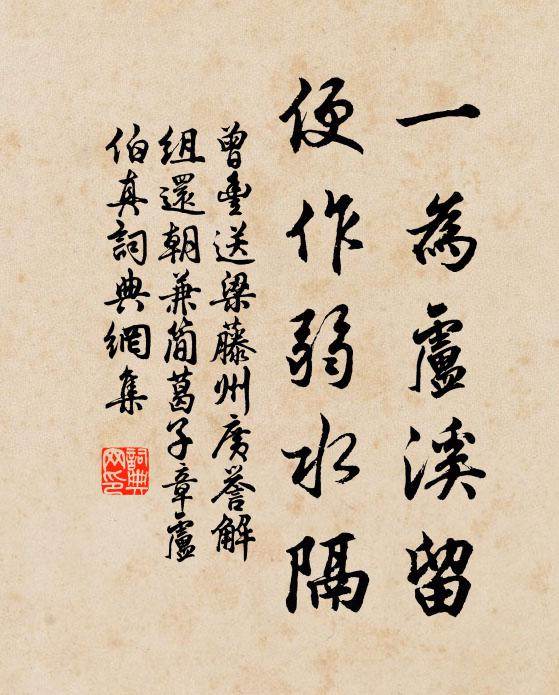 一為盧溪留
便作弱水隔
曾豊送梁藤州廣譽解
組還朝兼簡葛子章盧
伯真詞典網集
詞典网印